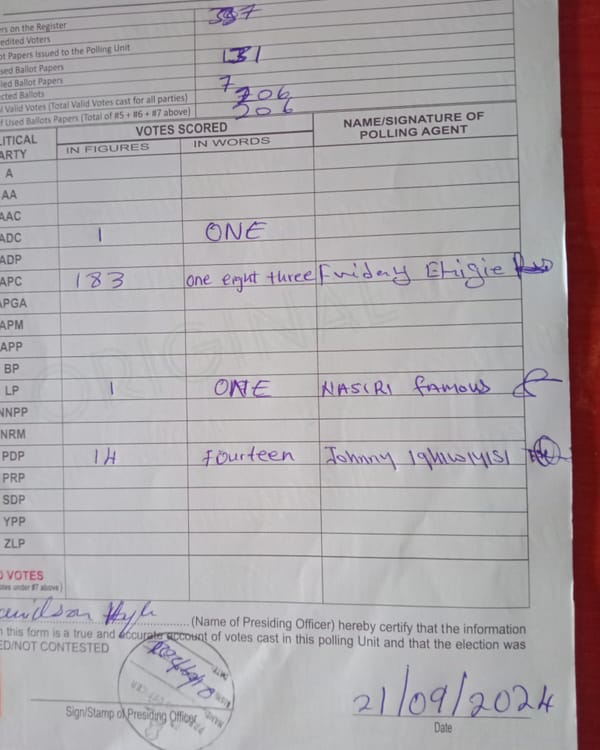 rs on the Register
edited Voters
t Papers Issued to the Polling Unit
sed Ballot Papers 131
led Ballot Papers
cted Ballots 7
l Valid Votes (Total Valid Votes cast for all parties) 206
f Used Ballots Papers (Total of #5 + #6 + #7 above) 206
LITICAL ARTY VOTES SCORED NAME/SIGNATURE OF POLLING AGENT
IN FIGURES IN WORDS
A
AA
AAC
ADC 1 ONE
ADP
APC 183 one eight three Friday Ehigie
APGA
APM
APP
BP
LP 1 ONE NASIRI famous
NNPP
NRM
PDP 14 fourteen Johnny
PRP
SDP
YPP
ZLP
D VOTES
otes under #7 above)
(Name of Presiding Officer) hereby certify that the information
n this form is a true and accurate account of votes cast in this polling Unit and that the election was
ED/NOT CONTESTED
ORIGINAL
Sign/Stamp of Presiding Officer
21/09/2024
Date